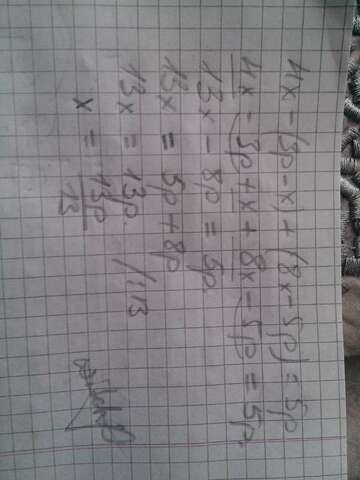 4x - (3p - x) + (8x - 5p) = 5p
4x - 3p + x + 8x - 5p = 5p
13x - 8p = 5p
13x = 5p + 8p
13x = 13p. /:13
x = 13p/13